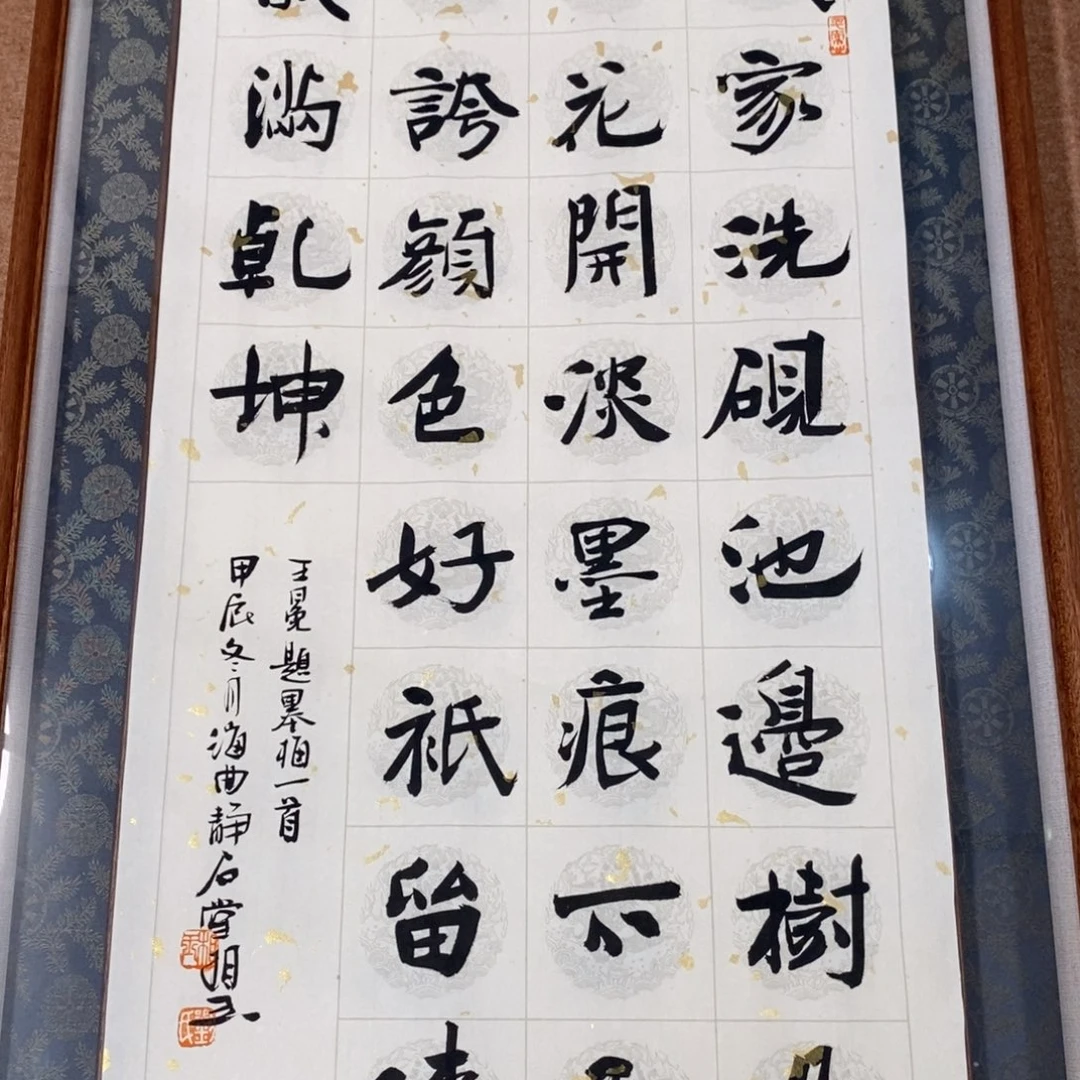 家洗硯池邊樹
花開淡墨痕不
誇顏色好祇留
滿乾坤
王冕題墨梅一首
甲辰冬月海曲靜石堂